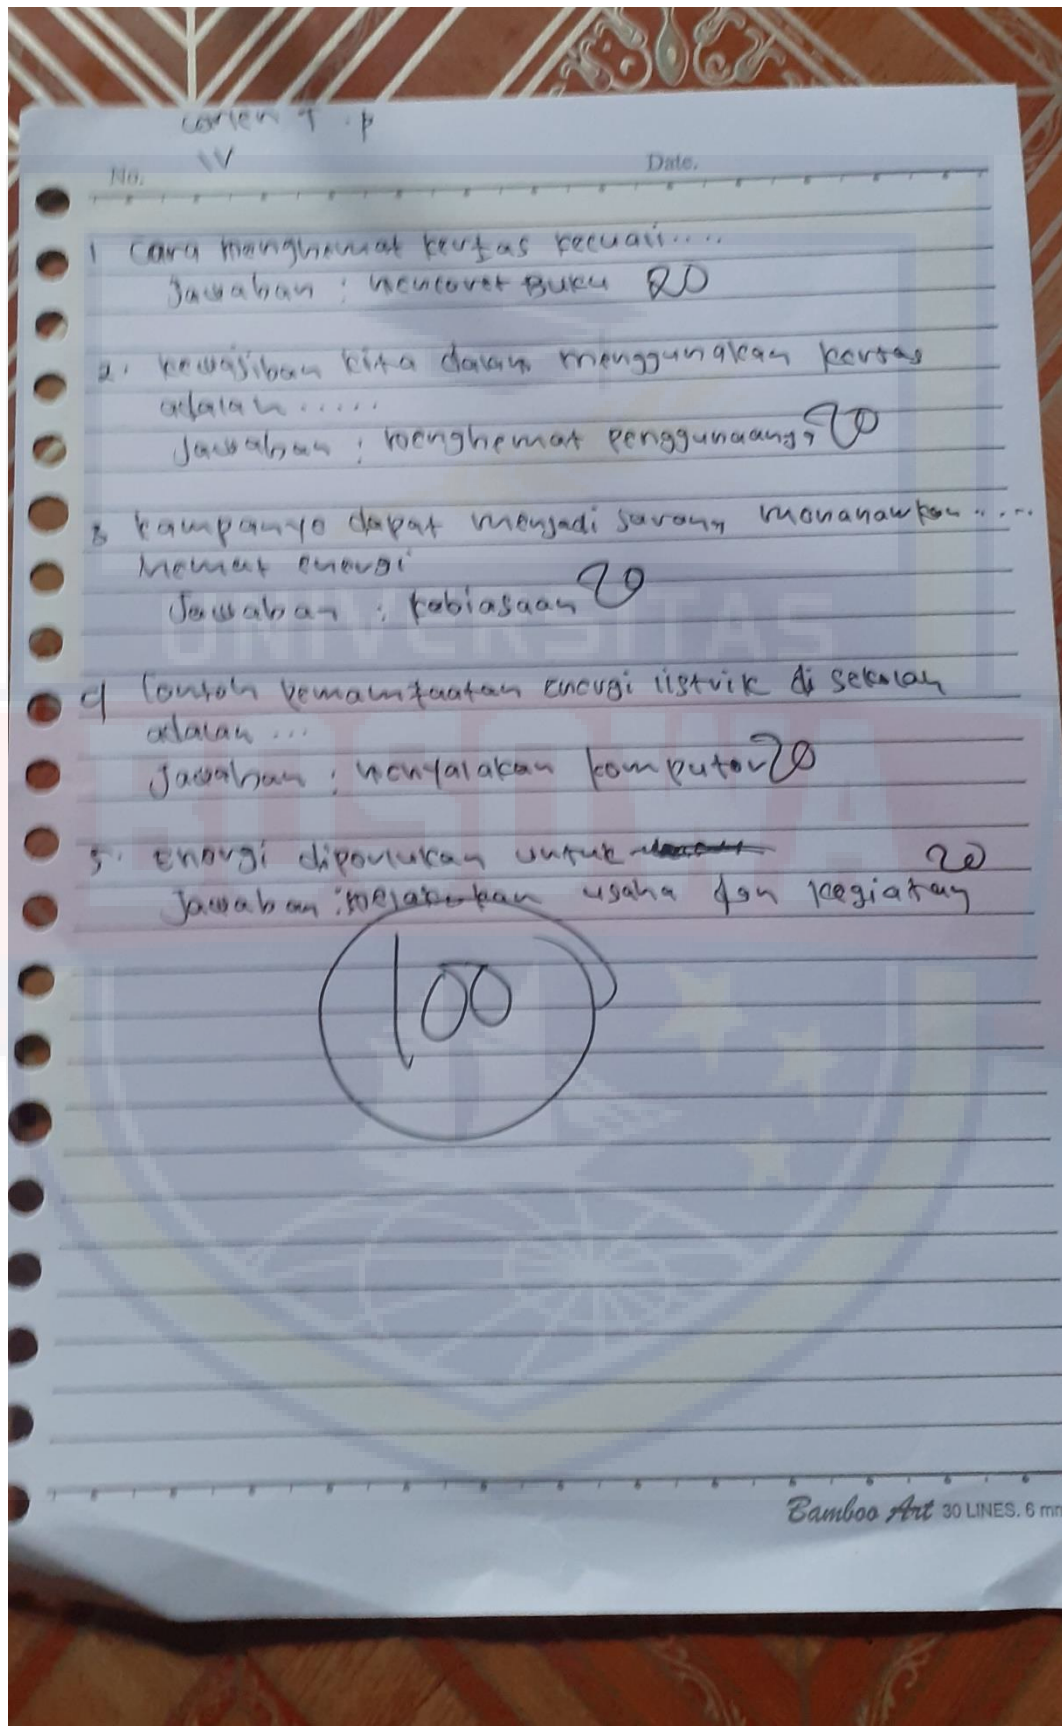 Carlen T. P
IV
No. Date.
1 Cara menghemat kertas kecuali.....
Jawaban : Mencoret Buku 20
2. kewajiban kita dalam menggunakan kertas
adalah .....
Jawaban : menghemat penggunaang, 20
3 kampanye dapat menjadi sarana menanamkan ....
Hemat energi
Jawaban : kebiasaan 20
UNIVERSITAS
4 Contoh pemamfaatan energi listrik di sekolah
adalah ...
Jawaban : Menyalakan komputer 20
BOSOWA
5. Energi diperlukan untuk
20
Jawaban : melakukan usaha dan kegiatan
100
Bamboo Art 30 LINES. 6 mm